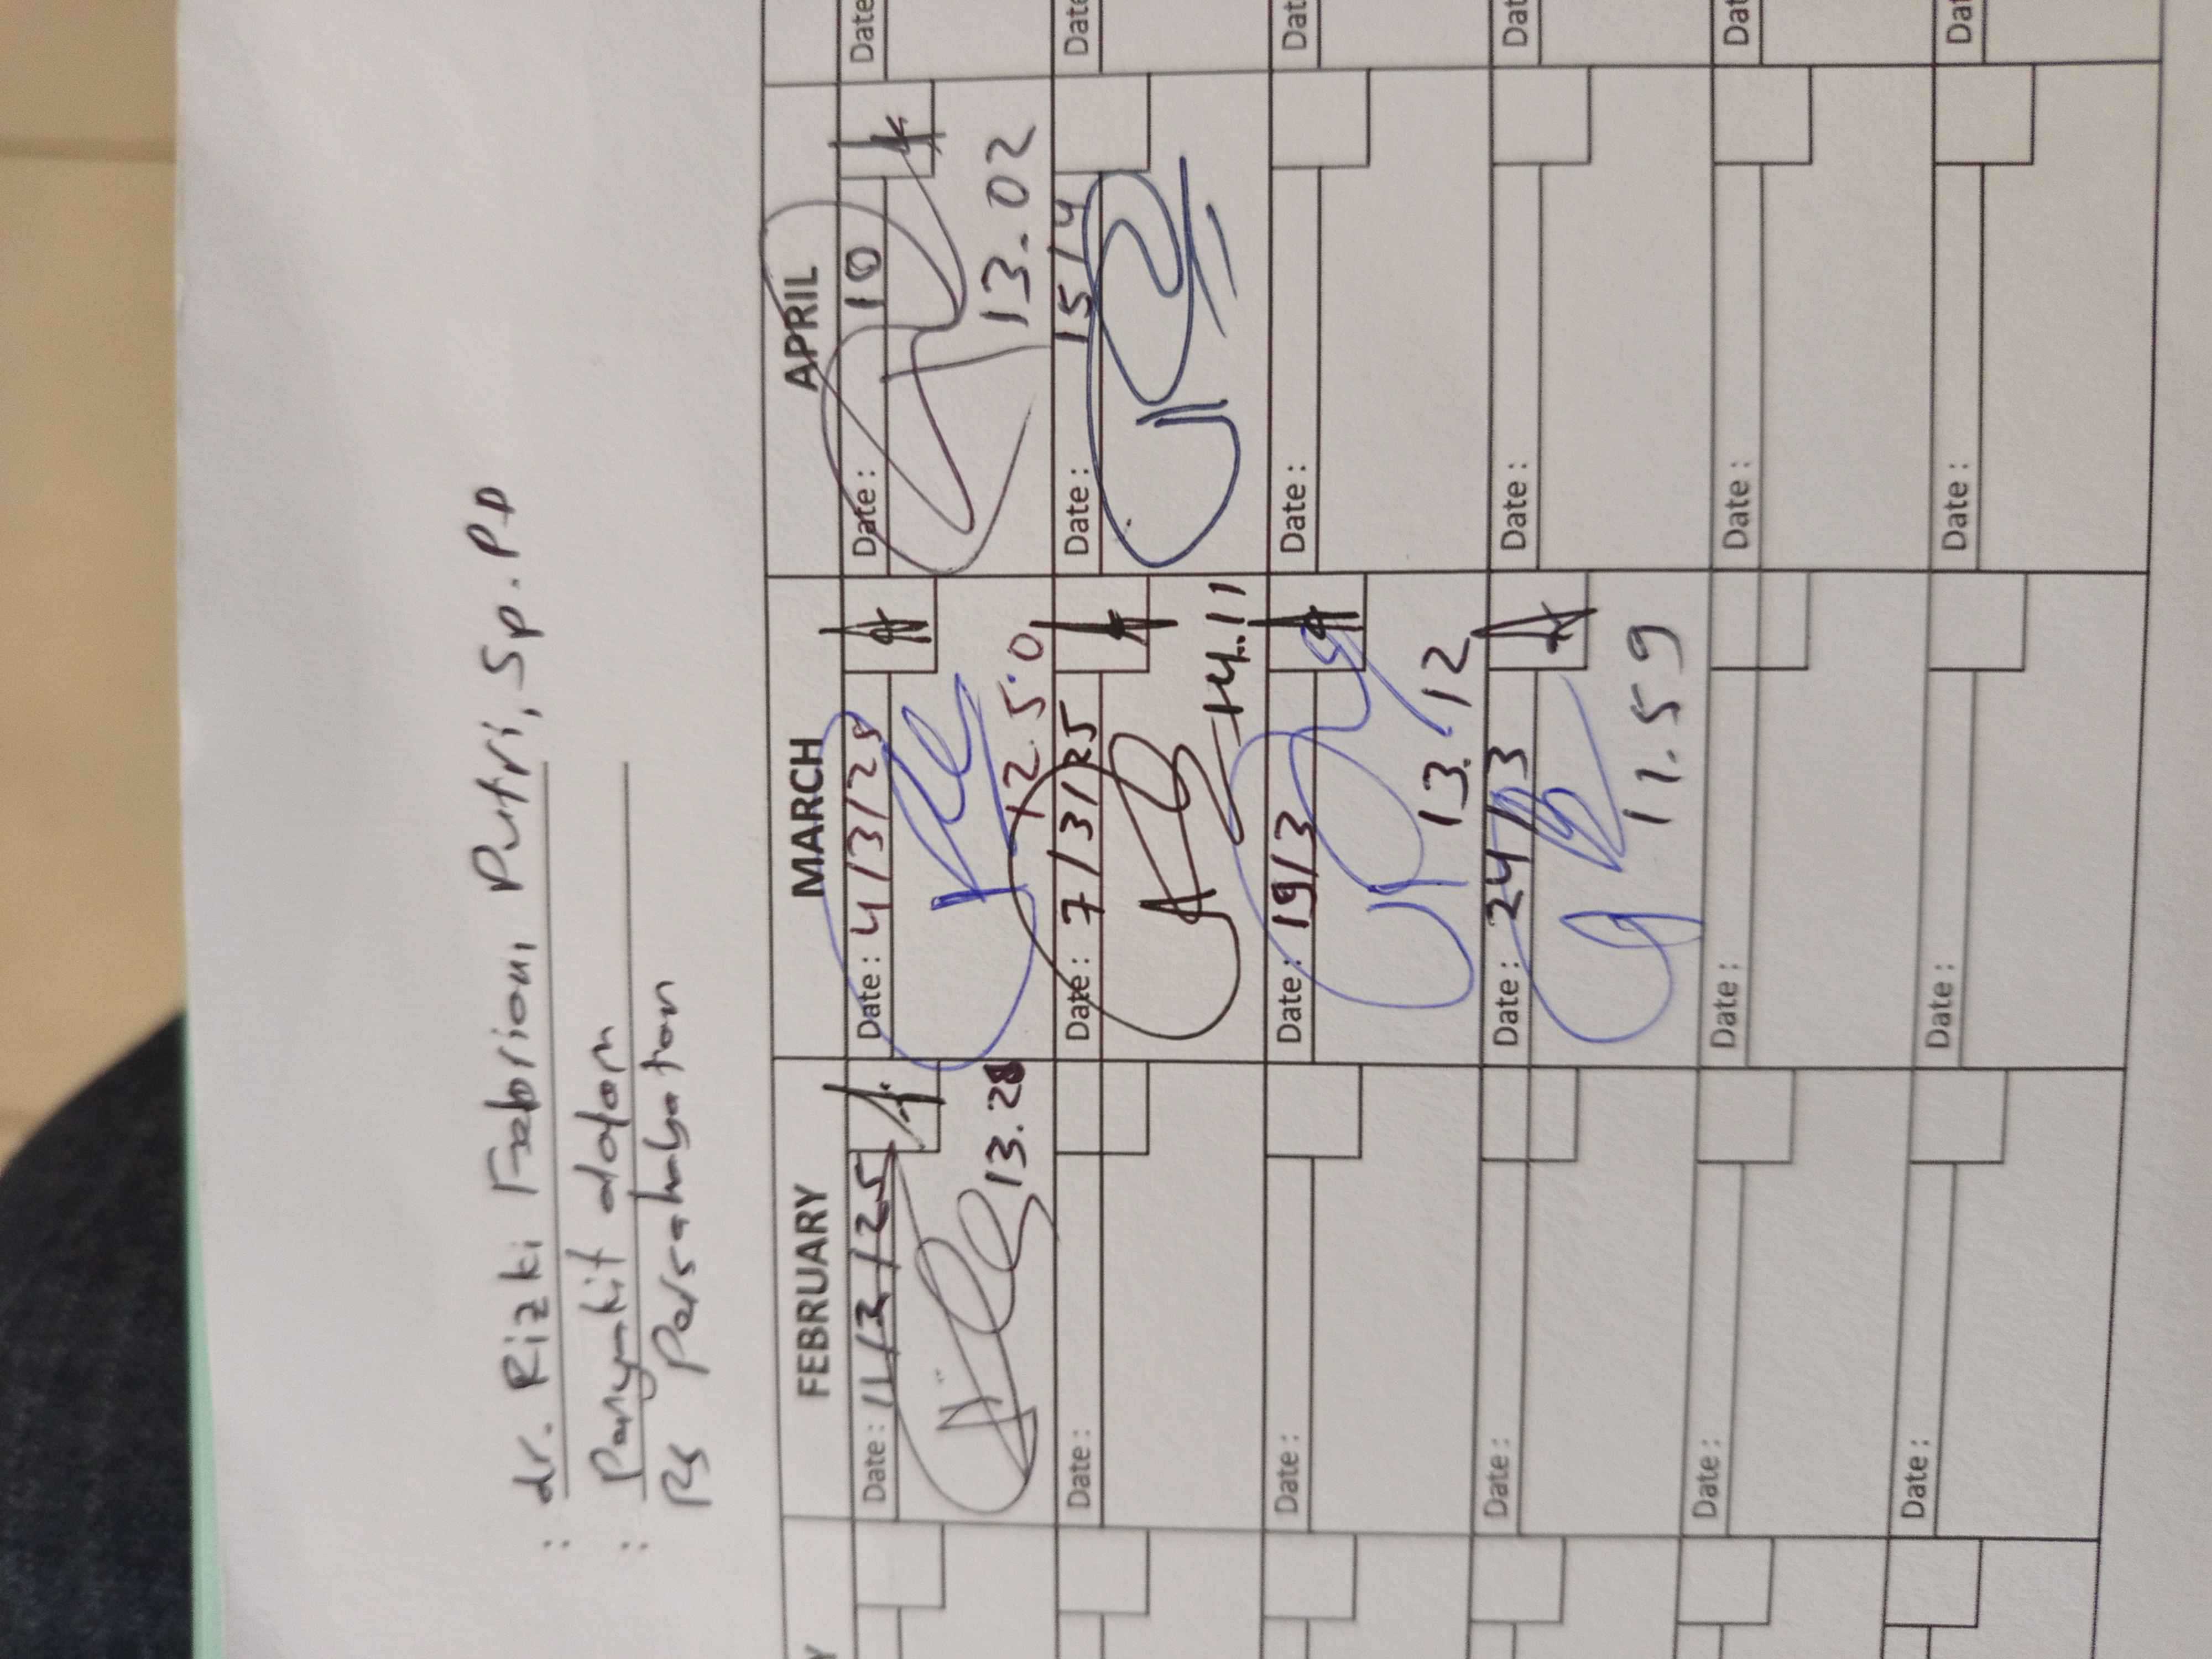 : dr. Rizki Febriani Putri, Sp. PD
: Penyakit dalam
RS Persahabatan
FEBRUARY MARCH APRIL
Date : 11/2/25 Date : 4/3/25 Date : 10 Date
13.28 12.50 13.02
Date : Date : 7/3/25 Date : 15/4 Date
14.11
Date : Date : 19/3 Date : Dat
13.12
Date : Date : 24/3 Date : Dat
11.59
Date : Date : Date : Dat
Date : Date : Date : Dat